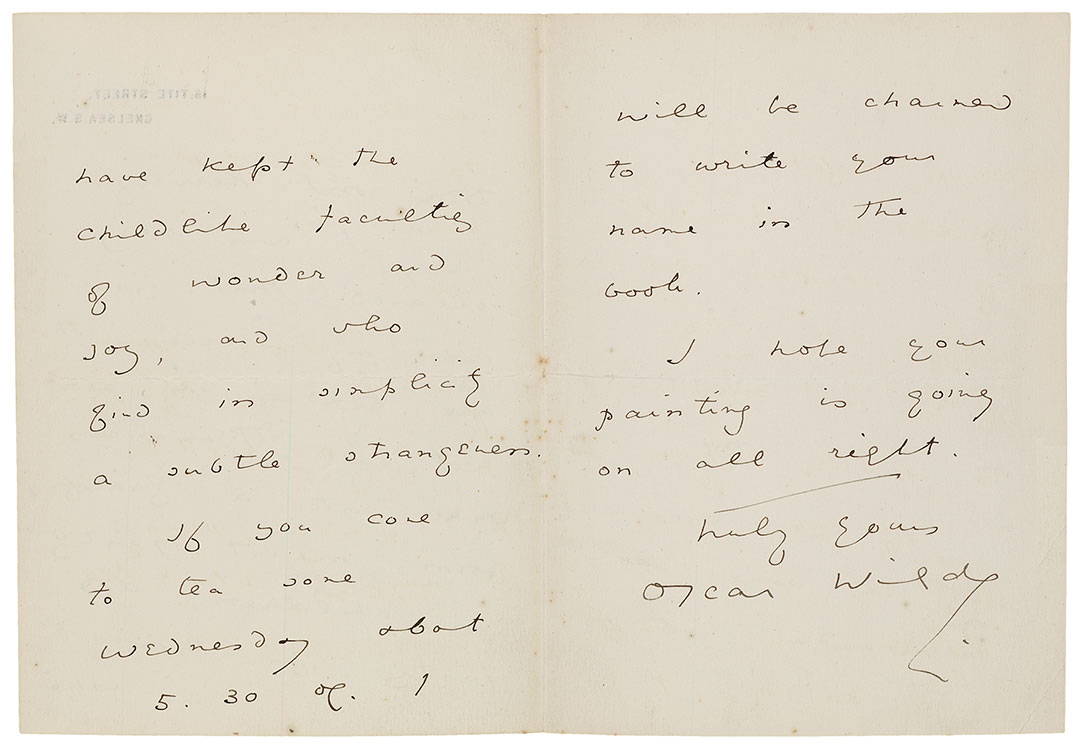 16, TITE STREET,
CHELSEA S.W.
have kept the
childlike faculties
of wonder and
joy, and who
find in simplicity
a subtle strangeness.
If you come
to tea some
Wednesday about
5.30 oc. I
will be charmed
to write your
name in the
book.
I hope your
painting is going
on all right.
truly yours
Oscar Wilde